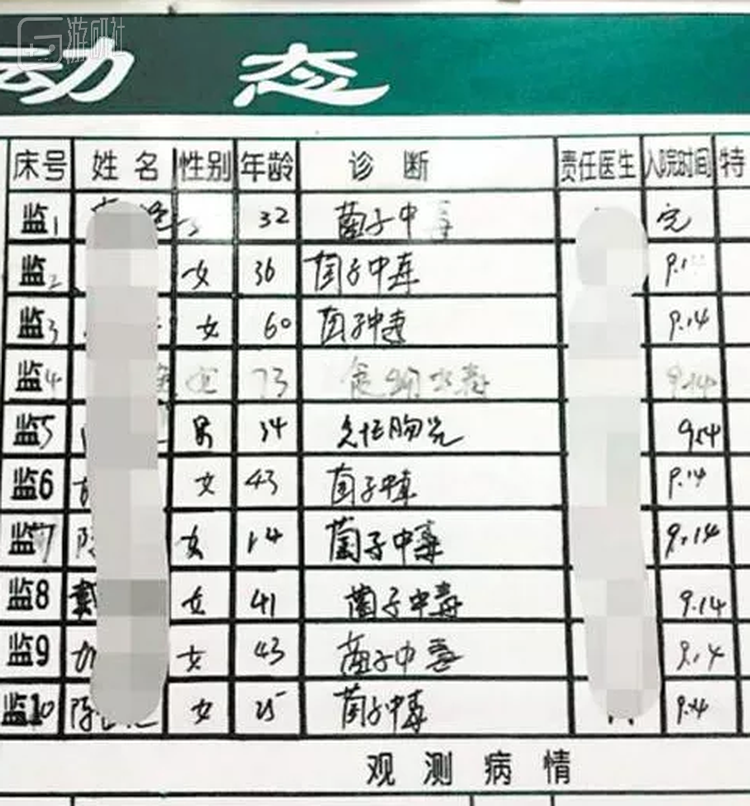 游研社
动态
床号 姓名 性别 年龄 诊断 责任医生 入院时间 特
监1 32 菌子中毒
监2 女 36 菌子中毒 9.14
监3 女 60 菌子中毒 9.14
监4 73 食物中毒 9.14
监5 男 34 9.14
监6 女 43 菌子中毒 9.14
监7 陈 女 14 菌子中毒 9.14
监8 戴 女 41 菌子中毒 9.14
监9 女 43 菌子中毒 9.14
监10 陈 女 25 菌子中毒 9.14
观测病情